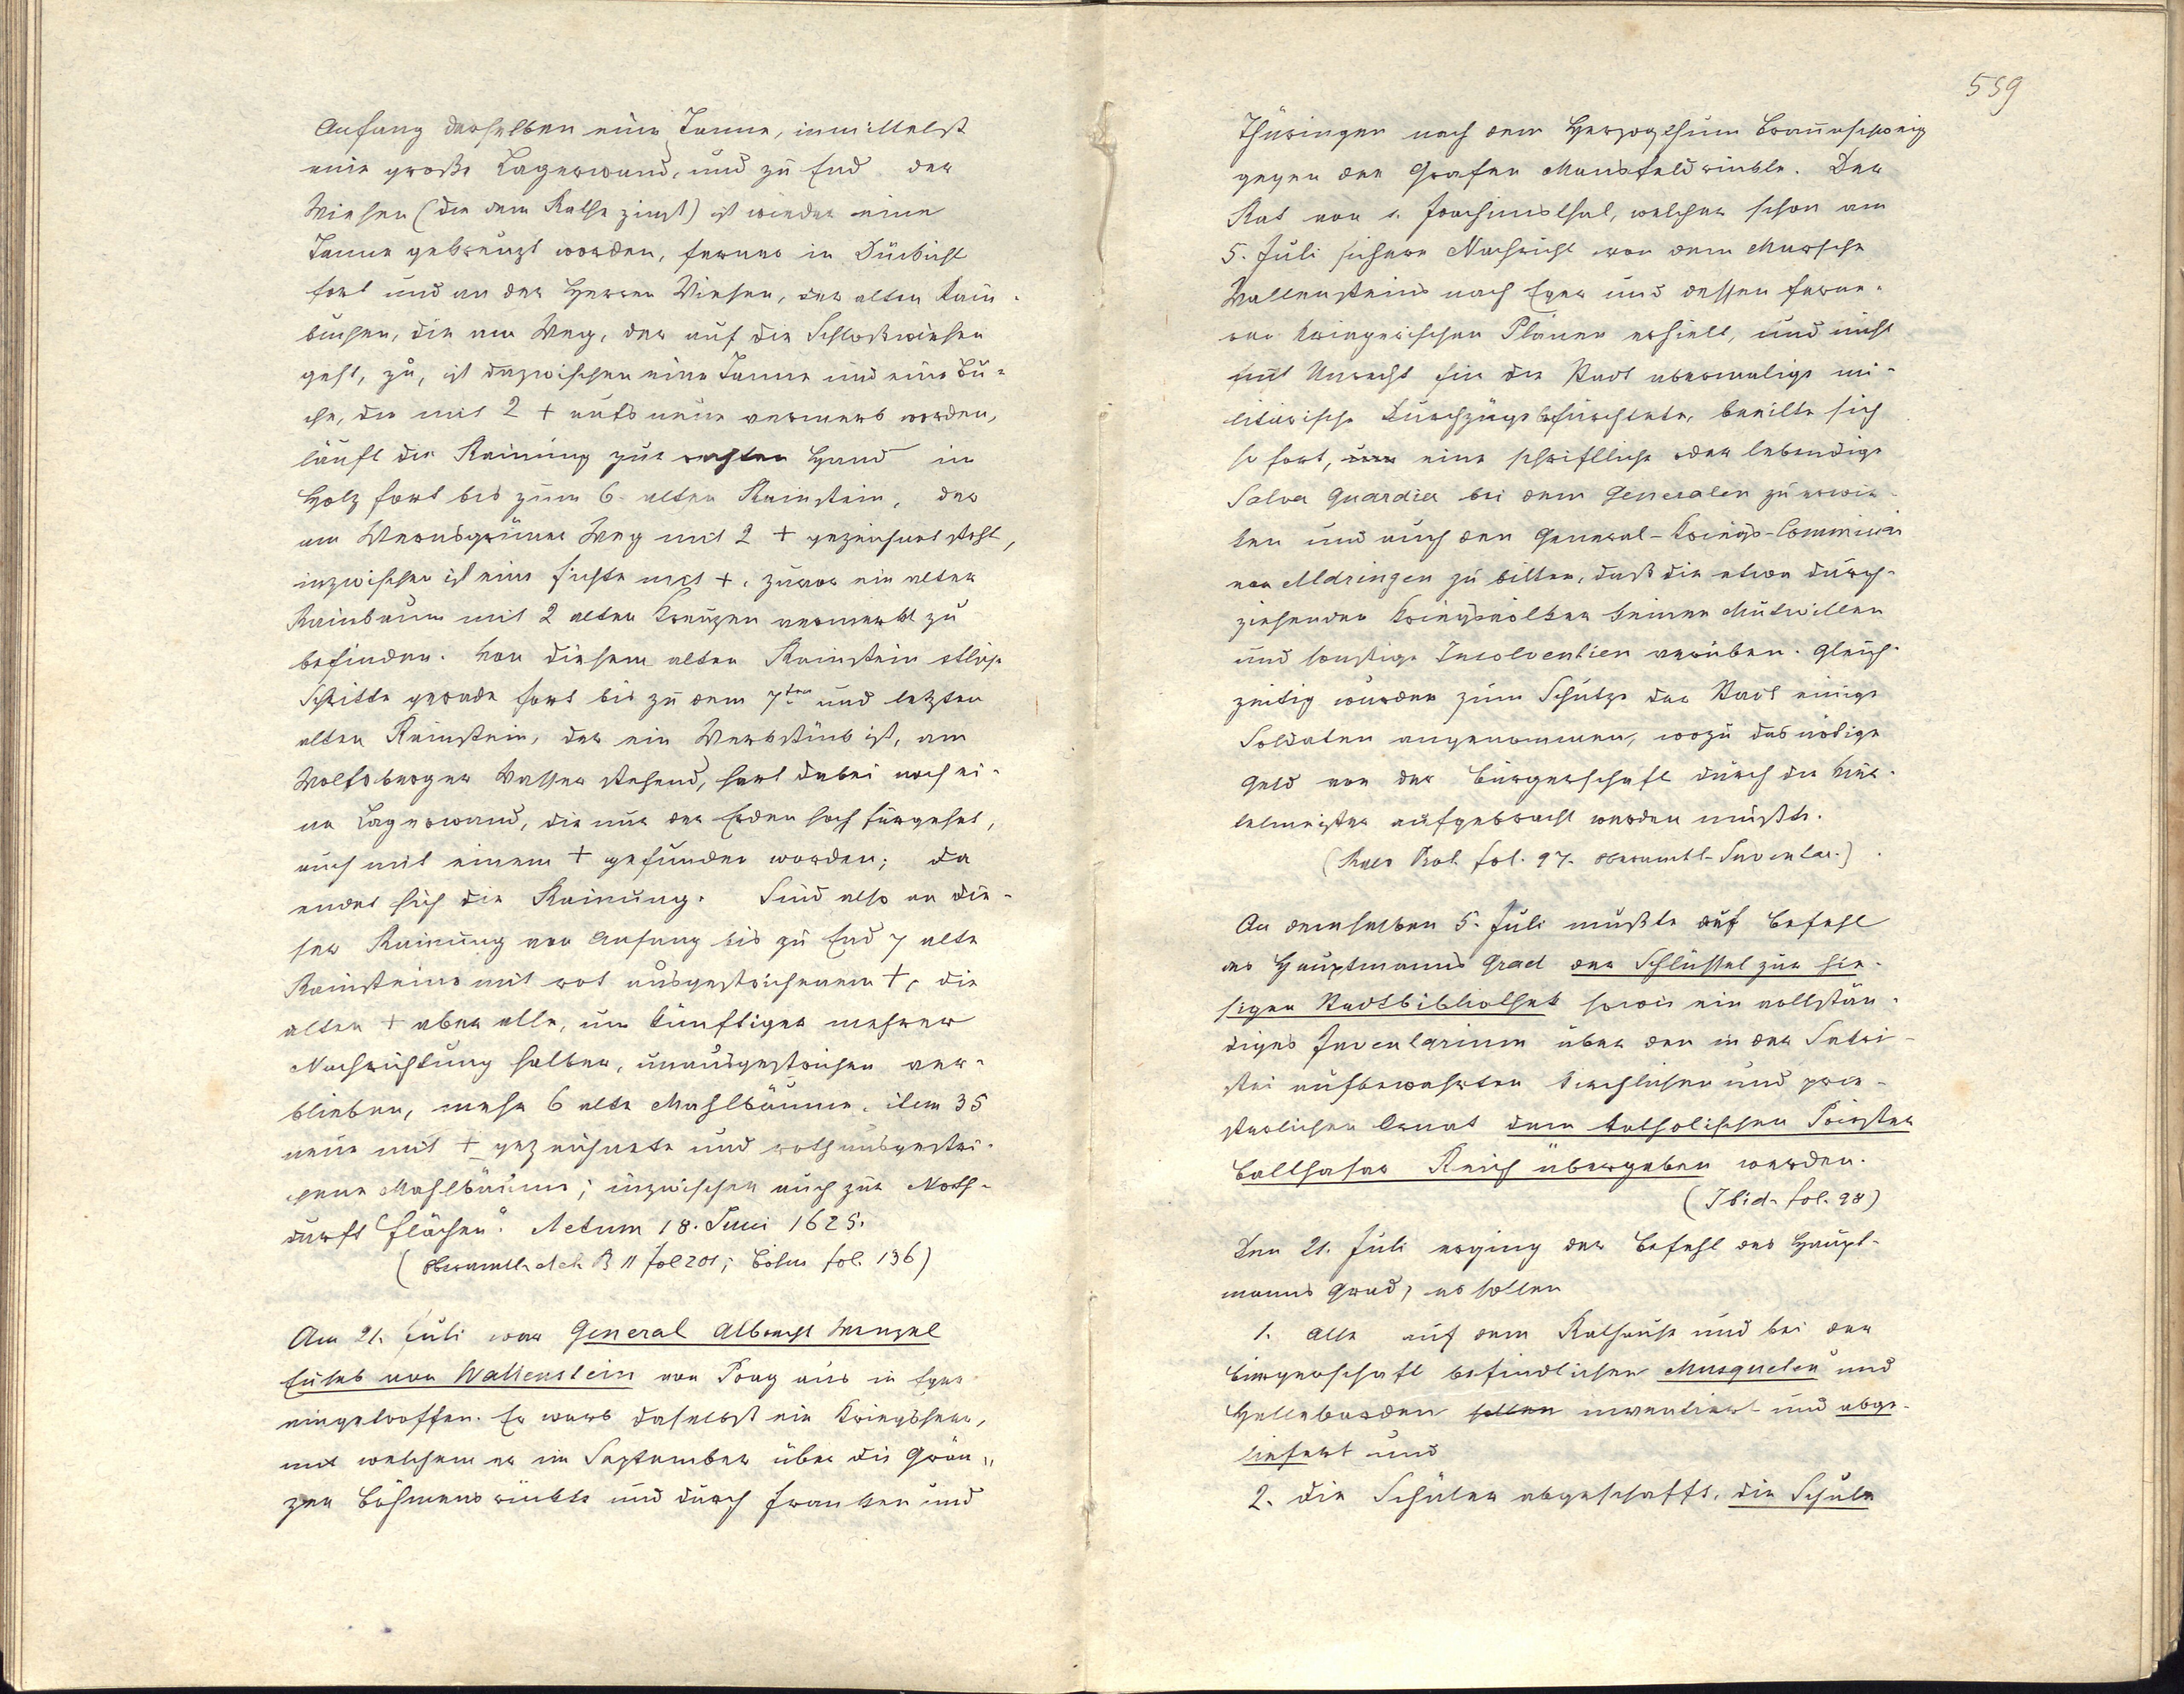 Anfang derselben eine Tanne, inmittelst
eine große Lagerwand, und zu End der
Wiesen (die dem Rathe zinst) ist wieder eine
Tanne gekreuzt worden, ferner in Dückicht
fort und an der Herren Wiesen, der alten Rain-
buchen, die am Weg, der auf die Schloßwiesen
geht, zu, ist dazwischen eine Tanne und eine Bu-
che, die mit 2 + aufs neue vermerkt worden,
läuft die Rainung zur rechten Hand in
Holz fort bis zum 6. alten Rainstein, der
am Wernsgrüner Weg mit 2 + gezeichnet steht,
inzwischen ist eine Fichte mit +, zuvor ein alter
Rainbaum mit 2 alten Kreuzen vermerkt zu
befinden. Von diesem alten Rainstein etliche
Schritte gerade fort bis zu dem 7ten und letzten
alten Rainstein, der ein Werkstück ist, am
Wolfsberger Wasser stehend, hart dabei noch ei-
ne Lagerwand, die nur der Erden hoch fürgehet,
auch mit einem + gefunden worden; da
endet sich die Rainung. Sind also an die-
ser Rainung von Anfang bis zu End 7 alte
Rainsteine mit rot ausgestrichenem +, die
alten + aber alle, um künftiger mehrer
Nachrichtung halber, unausgestrichen ver-
blieben, mehr 6 alte Mahlbäume, item 35
neue mit + gezeichnete und roth ausgestri-
chene Mahlbäume; inzwischen auch zur Noth-
durft Flächen". Actum 18. Juni 1625.
(Oberamtl. Act. B 11 fol 201; Böhm fol. 136)
Am 21. Juli war General Albrecht Wenzel
Euseb von Wallenstein von Prag aus in Eger
eingetroffen. Er warb daselbst ein Kriegsheer,
mit welchem er im September über die Grän-
zen Böhmens rückte und durch Franken und
559
Thüringen nach dem Herzogthum Braunschweig
gegen den Grafen Mansfeld rückte. Der
Rat von s. Joachimsthal, welcher schon am
5. Juli sichere Nachricht von dem Marsche
Wallensteins nach Eger und dessen ferne-
ren kriegerischen Plänen erhielt, und nicht
mit Unrecht für die Stadt abermalige mi-
litärische Durchzüge befürchtete, beeilte sich
so fort, um eine schriftliche oder lebendige
Salva Guardia bei dem Generalen zu erwir-
ken und auch den General-Kriegs-Commissär
von Aldringen zu bitten, daß die etwa durch-
ziehenden Kriegsvölker keinen Mutwillen
und sonstige Insolventien verüben. Gleich-
zeitig wurden zum Schutze der Stadt einige
Soldaten angenommen, wozu das nödige
Geld von der Bürgerschaft durch die Vier-
telmeister aufgebracht werden mußte.
(Raes Prot. fol. 97. oberamtl. Inventar.)
An demselben 5. Juli mußte auf Befehl
des Hauptmanns Grad der Schlüssel zur hie-
sigen Stadtbibliothek sowie ein vollstän-
diges Inventarium über den in der Sakri-
stei aufbewahrten kirchlichen und prie-
sterlichen Ornat dem katholischen Priester
Balthasar Reich übergeben werden.
(Ibid. fol. 98)
Den 21. Juli erging der Befehl des Haupt-
manns Grad, es sollen
1. alle auf dem Rathause und bei der
Bürgerschaft befindlichen Musqueten und
Hellebarden sollen inventiert und abge-
liefert und
2. die Schüler abgeschafft, die Schule